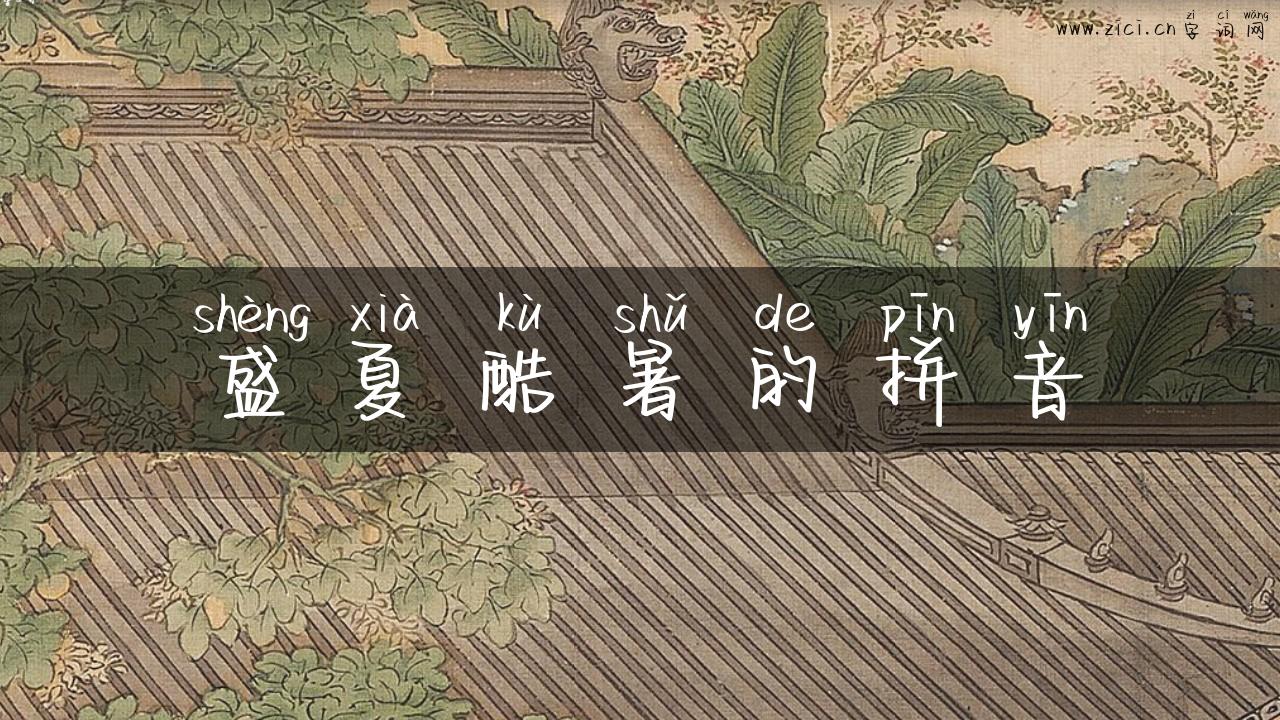 zì cí wǎng
www.zici.cn 字词网
shèng xià kù shǔ de pīn yīn
盛夏酷暑的拼音